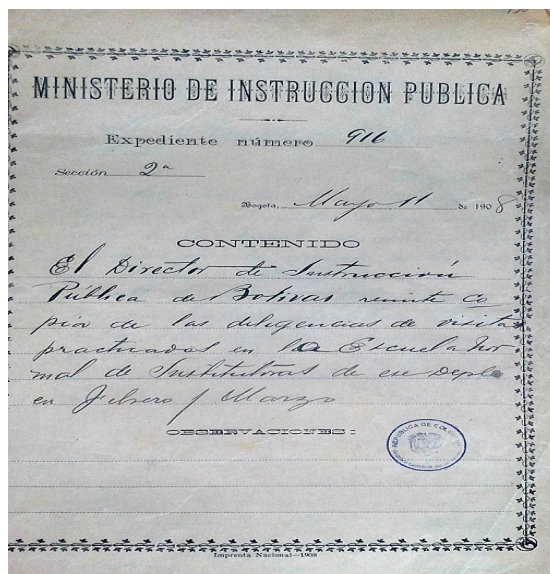 MINISTERIO DE INSTRUCCION PUBLICA
Expediente número 916
Sección 2ª
Bogotá, Mayo 11 de 1908
CONTENIDO
El Director de Instrucción
Pública de Bolivar remite co
pia de las diligencias de visita
practicadas en la Escuela Nor
mal de Institutoras de ese Depto
en Febrero y Marzo
OBSERVACIONES:
REPÚBLICA DE COLOMBIA
Imprenta Nacional—1908